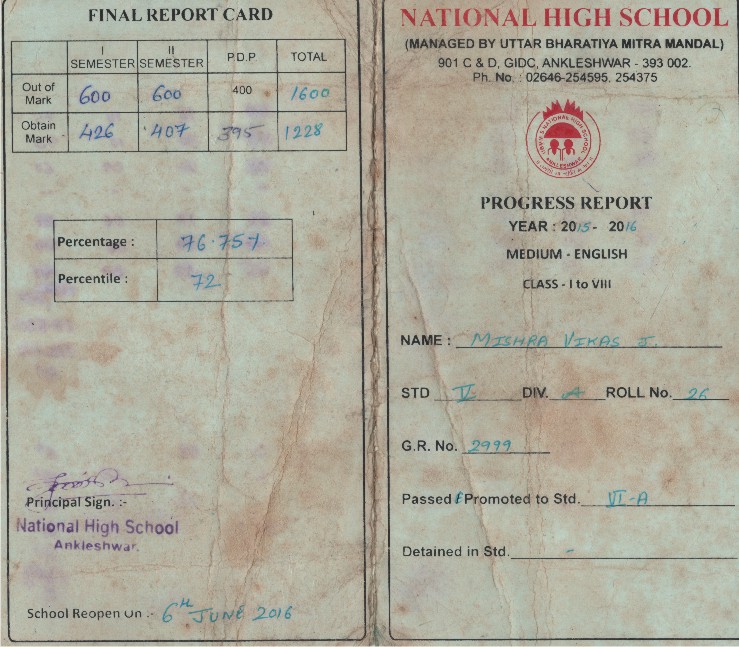 FINAL REPORT CARD
I SEMESTER II SEMESTER P.D.P. TOTAL
Out of Mark 600 600 400 1600
Obtain Mark 426 407 395 1228
Percentage : 76.75%
Percentile : 72
Principal Sign. :-
National High School
Ankleshwar.
School Reopen On :- 6TH JUNE 2016
NATIONAL HIGH SCHOOL
(MANAGED BY UTTAR BHARATIYA MITRA MANDAL)
901 C & D, GIDC, ANKLESHWAR - 393 002.
Ph. No. : 02646-254595, 254375
PROGRESS REPORT
YEAR : 2015 - 2016
MEDIUM - ENGLISH
CLASS - I to VIII
NAME : MISHRA VIKAS J.
STD V DIV. A ROLL No. 26
G.R. No. 2999
Passed & Promoted to Std. VI-A
Detained in Std. -